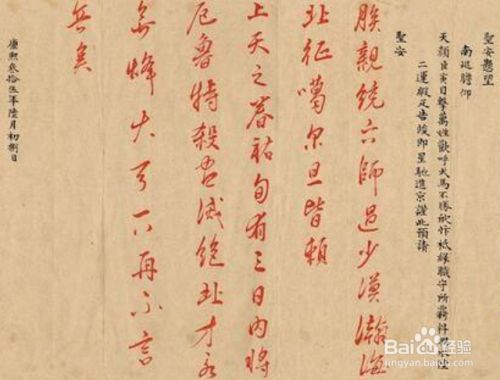 聖安懇望
南巡瞻仰
天顏臣寅目擊萬姓歡呼犬馬不勝欣忭祗緣職守所羈料理
二運數足告竣即星馳進京謹此預請
聖安
朕親統六師過少漠瀚海
北征噶尔旦皆賴
上天之眷祐旬有三日內將
厄魯特殺滅絕北方永
無烽火下再不言
兵矣
康熙叁拾伍年陸月初捌日
Baidu经验
jingyan.baidu.com